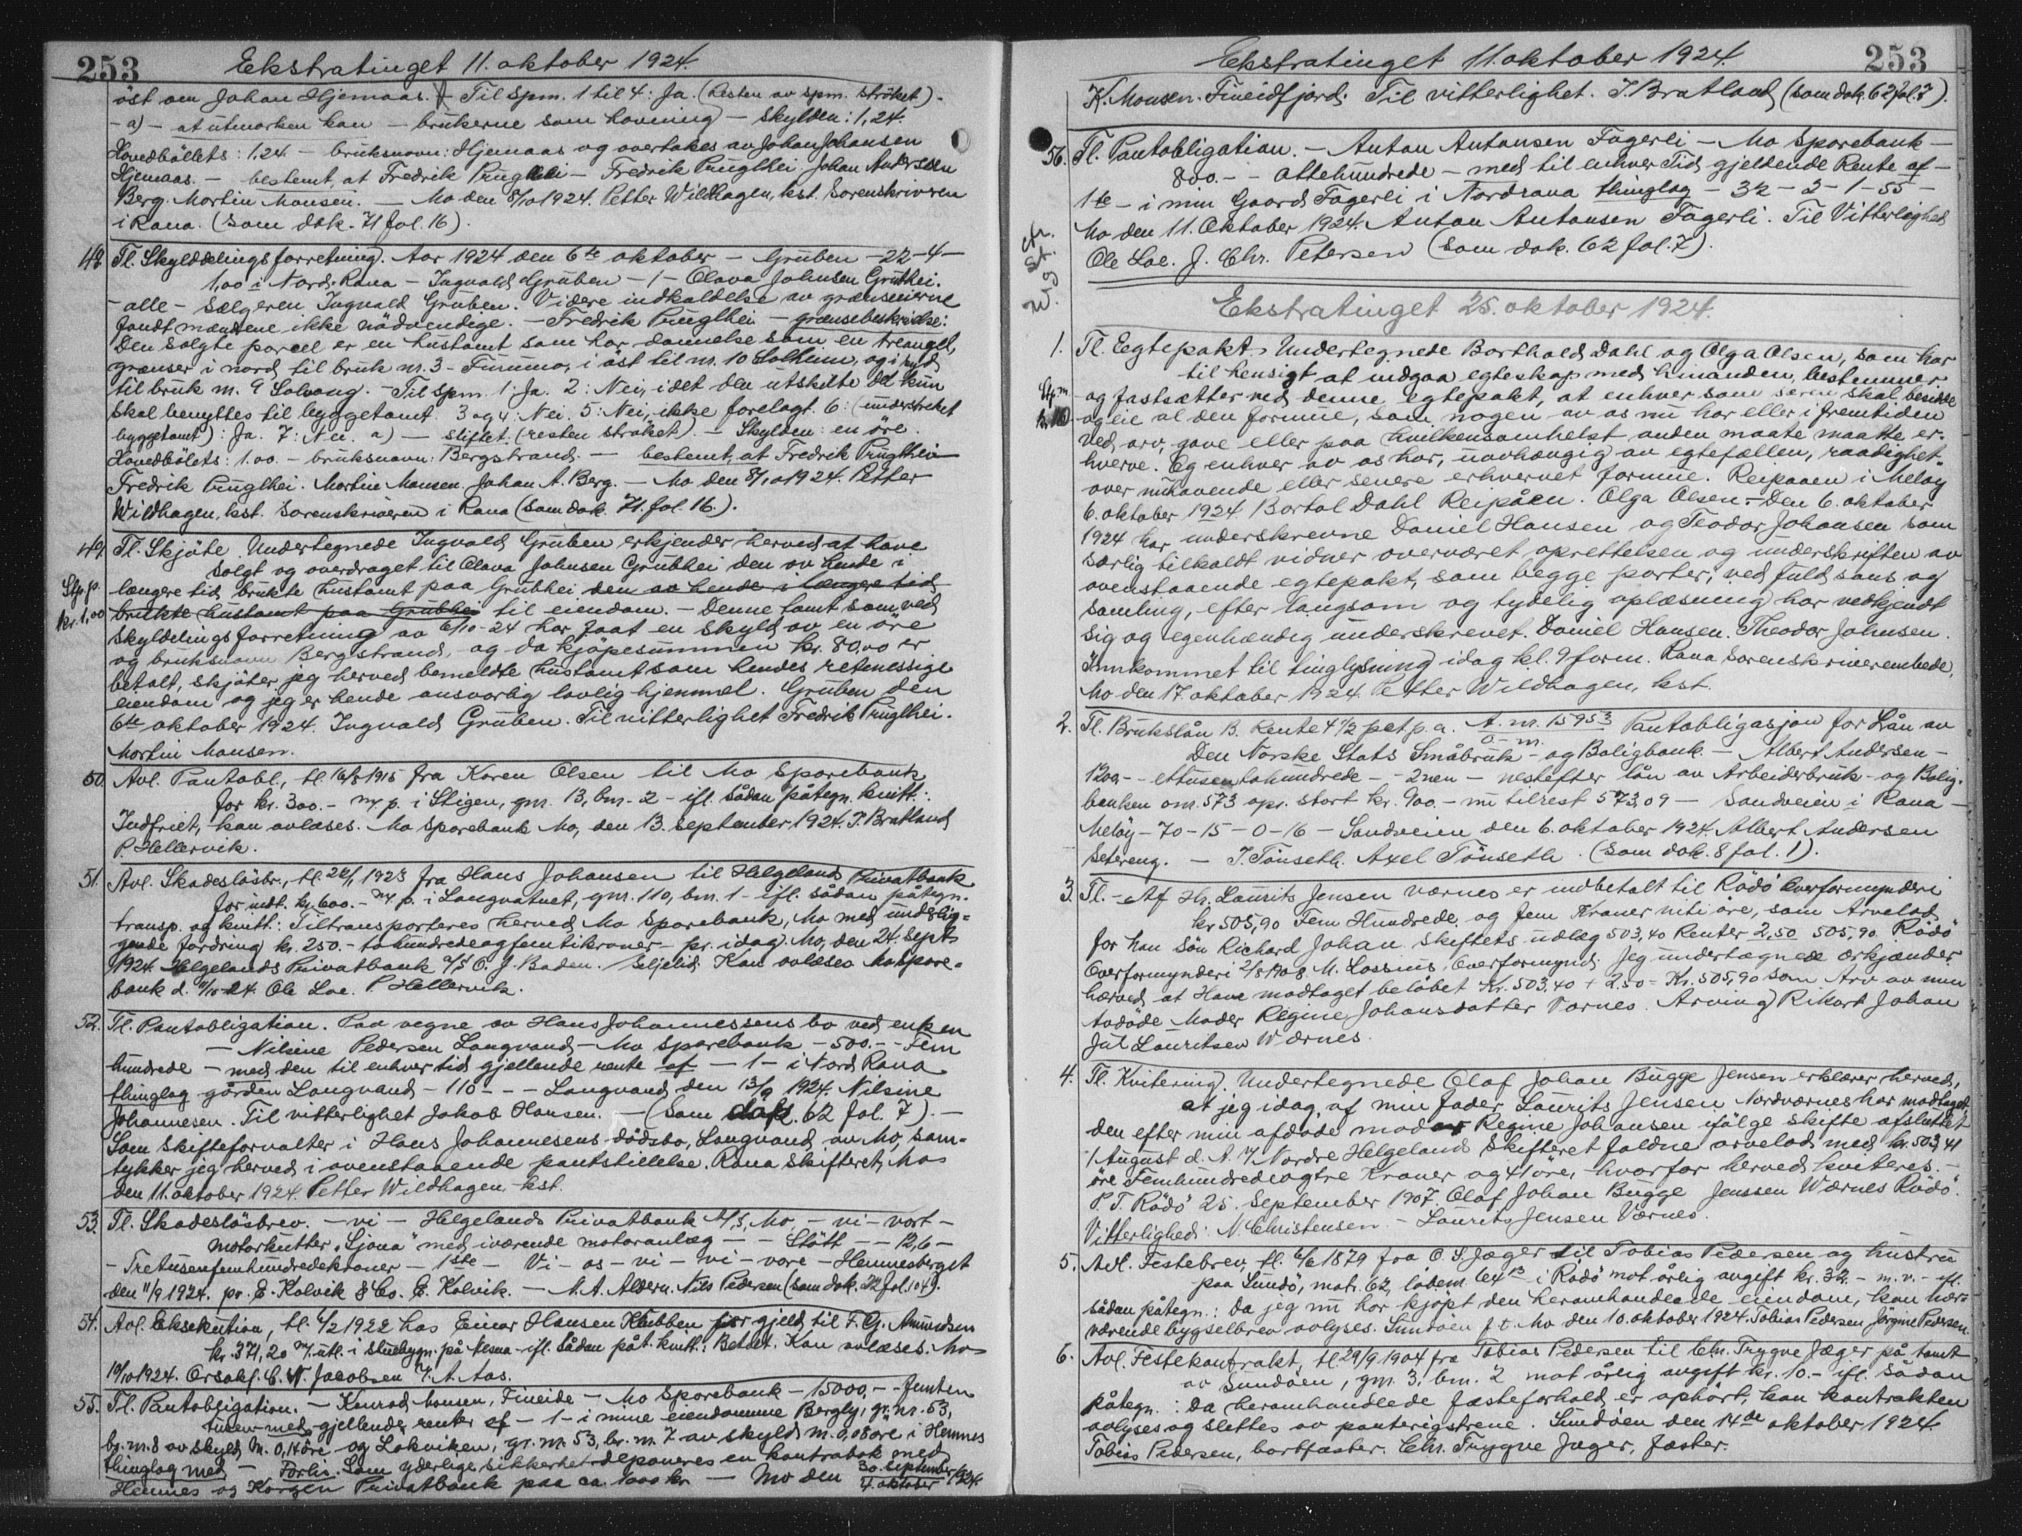 253
Ekstratinget 11. oktober 1924.
öst om Johan Hjemaas. Til Spm. 1 til 4: Ja. (Resten av spm. strøket).
- a) - at utmarken kan - brukerne som havning - Skylden: 1,24.
Hovedböllets: 1,24 - bruksnavn: Hjemaas og overtakes av Johan Johansen
Hjemaas. - bestemt, at Fredrik Pruglhei - Fredrik Pruglhei Johan Andersen
Berg. Martin Monsen. - Mo den 8/10 1924. Petter Wildhagen, kst. Sorenskriveren
i Rana. (Som dok. 71 fol. 16).
48. Tl. Skylddelingsforretning. Aar 1924 den 6te oktober - Gruben - 22 - 4 -
1,00 i Nord-Rana - Ingvald Gruben - 1 - Olava Johnsen Grubhei.
- alle - sælgeren Ingvald Gruben. Videre indkaldelse av grænseeierne
fandt mændene ikke nödvendige. - Fredrik Pruglhei - grænsebeskrivelse:
Den solgte parcel er en hustomt som har dannelse som en treangel,
grænser i nord til bruk nr. 3 - Furumo, i öst til nr. 10 Solheim, og i syd
til bruk nr. 9 Solvang. - Til spm. 1: Ja. 2: Nei, idet den utskilte del kun
skal benyttes til byggetomt. 3 og 4: Nei. 5: Nei, ikke forelagt. 6: (understreket
byggetomt): Ja. 7: Nei. a) - stiftet. (resten strøket). - Skylden: en øre.
Hovedbölets: 1.00. - bruksnavn: Bergstrand. - bestemt, at Fredrik Pruglhei -
Fredrik Pruglhei. Martin Monsen. Johan A. Berg. - Mo den 8/10 1924. Petter
Wildhagen, kst. Sorenskriveren i Rana (Som dok. 71. fol. 16.).
49. Tl. Skjöte. Undertegnede Ingvald Gruben erkjender herved at have
solgt og overdraget til Olava Johnsen Grubhei den av hende i
Stp. p.
kr. 1,00
længere tid brukte hustomt paa Grubhei den av hende i længere tid
brukte hustomt paa Grubhei til eiendom. - Denne tomt som ved
Skyldelingsforretning av 6/10-24 har faat en skyld av en øre
og bruksnavn Bergstrand, og da kjöpesummen kr. 80,00 er
betalt, skjöter jeg herved bemeldte hustomt som hendes retmessige
eiendom og jeg er hende ansvarlig lovlig hjemmel. Gruben den
6te oktober 1924. Ingvald Gruben. Til vitterlighet Fredrik Pruglhei.
Martin Monsen.
50. Avl. Pantobl., tl. 16/8 1915 fra Karen Olsen til Mo Sparebank
for kr. 300.- m. p. i Stigen, gnr. 13, bnr. 2 - ifl. sådan påtegn. kvitt.:
Indfriet, kan avlæses. Mo Sparebank Mo, den 13. september 1924. J. Bratland
P. Hellervik.
51. Avl. Skadeslösbr., tl. 22/1 1923 fra Hans Johansen til Helgelands Privatbank
for indt. kr. 600.- m. p. i Langvatnet, gnr. 110, bnr. 1 - ifl. sådan påtegn.
transp. og kvitt.: Tiltransporteres herved Mo Sparebank, Mo med underlig-
gende fordring kr. 250.- tohundredeogfemtikroner - pr. idag. Mo, den 24. sept.
1924. Helgelands Privatbank A/S O. J. Baden. Seljelid. Kan avlæses Mo Spare-
bank d. 11/10-24. Ole Loe. P. Hellervik.
52. Tl. Pantobligation. Paa vegne av Hans Johannessens bo ved enken
- Nilsine Pedersen Langvand - Mo Sparebank - 500.- - Fem
hundrede - med den til enhver tid gjellende rente af - 1 - i Nord Rana
thinglag gården Langvand - 110 - - Langvand den 13/9 1924. Nilsine
Johannesen. Til vitterlighet Jakob Hansen. - (Som dok. 62 fol. 7). -
Som skifteforvalter i Hans Johannesens dödsbo, Langvand av Mo, sam-
tykker jeg herved i ovenstaaende pantstillelse. Rana Skifteret, Mo
den 11. oktober 1924. Petter Wildhagen kst.
53. Tl. Skadeslösbrev. - vi - Helgelands Privatbank A/S, Mo, - vi - vort -
motorkutter "Sjona" med iværende motoranlæg - - Stött - - 12,6 -
- Tretusenfemhundredekroner - 1ste - Vi - os - vi - vi - vore - Hemnesberget
den 11/9 1924. pr. E. Kolvik & Co. E. Kolvik. - A. A. Aldern. Nils Pedersen (som dok. 22 fol. 104).
54. Avl. Eksekution, tl. 6/2 1922 hos Einar Hansen Klubben for gjeld til F. G. Amundsen
kr. 371,20 m. utl. i stuebygn. på Nesna - ifl. sådan påt. kvitt.: Betalt. Kan avlæses. Mo
10/10 1924. Orsakf. C. N. Jacobsen A. Aas.
55. Tl. Pantobligation. - Konrad Monsen, Fineide - Mo Sparebank - 15000,- - Femten
tusen - med gjellende renter af - 1 - i mine eiendomme Bergly, gr. nr. 53,
br. nr. 8 av skyld m. 0,14 øre og Lakviken, gr. nr. 53, br. nr. 7 av skyld m. 0,08 øre i Hemnes
thinglag med - Forlis. Som yderlige sikkerhet deponeres en kontrabok med
Hemnes og Korgen Privatbank paa ca. 1000 kr. - Mo den 30. september 1924.
4. oktober
253
Ekstratinget 11 oktober 1924.
K. Monsen. Fineidfjord. Til vitterlighet. J. Bratland (Som dok. 62 fol. 7).
56. Tl. Pantobligation. - Anton Antonsen Fagerli - Mo Sparebank -
800.- - Ottehundrede - med til enhver Tid gjeldende Rente af -
1te - i min Gaard Fagerli i Nordrana thinglag - 32 - 2 - 1 - 55 -
Mo den 11. Oktober 1924. Anton Antonsen Fagerli. Til Vitterlighed
Ole Loe. J. Chr. Petersen (Som dok. 62 fol. 7).
Ekstratinget 25. oktober 1924.
1. Tl. Egtepakt. Undertegnede Barthold Dahl og Olga Olsen, som har
til hensigt at indgaa egteskap med hinanden, bestemmer
og fastsætter ved denne egtepakt, at enhver som særeie skal besidde
og eie al den formue, som nogen av os nu har eller i fremtiden
ved arv, gave eller paa hvilkensomhelst anden maate maatte er-
hverve. Og enhver av os har, uavhængig av egtefællen, raadighet
over nuhavende eller senere erhvervet formue. Reipaaen i Meløy
6. oktober 1924 Bartol Dahl Reipåen. Olga Olsen. - Den 6. oktober
1924 har underskrevne Daniel Hansen og Teodor Johansen som
særlig tilkaldt vidner overværet oprettelsen og underskriften av
ovenstaaende egtepakt, som begge parter, ved fuld sans og
samling, efter langsom og tydelig oplæsning har vedkjendt
sig og egenhændig underskrevet. Daniel Hansen. Theodor Johnsen.
Innkommet til tinglysning idag kl. 9 form. Rana Sorenskriverembede,
Mo den 17 oktober 1924. Petter Wildhagen, kst.
2. Tl. Brukslån B. Rente 4 1/2 pct. p. a. A. nr. 15953 Pantobligasjon for Lån av
Den Norske Stats Småbruk- og Boligbank. - Albert Andersen -
1200.- - ettusentohundrede - - 2nen - nestefter lån av Arbeiderbruk- og Bolig-
banken o nr. 573 opr. stort kr. 900.- nu tilrest 573,09 - Sandveien i Rana -
Meløy - 70 - 15 - 0 - 16 - Sandveien den 6. oktober 1924. Albert Andersen
Setereng. - J. Tönseth. Axel Tönseth. (Som dok. 8 fol. 1).
3. Tl. - Af Hr. Laurits Jensen Værnes er indbetalt til Rödö Overformynderi
kr 505,90 Fem Hundrede og fem Kroner niti öre, som Arvelod
for han Sön Richard Johan. Skiftets udlæg 503,40 Renter 2,50 505,90. Rödö
Overformynderi 2/8 1908 M. Lossius, Overformynd. Jeg undertegnede erkjænder
hærved at Have modtaget beløbet Kr. 503,40 + 2.50 = Kr. 505,90 som Arv av min
Avdöde Moder Regine Johansdatter Værnes. Arving Rikart Johan
Jul Lauritsen Wærnes.
4. Tl. Kvitering. Undertegnede Olaf Johan Bugge Jensen erklærer herved,
at jeg idag, af min fader Laurits Jensen Nordværnes har modtaget
den efter min afdøde moder Regine Johansen ifölge skifte afsluttet
1 August d. A. i Nordre Helgeland Skifteret faldne arvelod med kr. 503,41
öre Femhundredeogtre Kroner og 41 öre, hvorfor herved kviteres. -
P. T. Rödö 25. September 1907. Olaf Johan Bugge Jenssen Wærnes Rödö.
Vitterlighed: N. Christensen. - Laurits Jensen Værnes.
5. Avl. Festebrev, tl. 6/6 1879 fra O. S. Jæger til Tobias Pedersen og hustru
paa Sundö, matr. 62, løbenr. 64 i Rödö mot årlig avgift kr. 32.- m. v. - ifl.
sådan påtegn.: Da jeg nu har kjøpt den heromhandlede eiendom, kan hær-
værende bygselbrev avlyses. Sundøen p. t. Mo den 10. oktober 1924. Tobias Pedersen Jörgine Pedersen.
6. Avl. Festekontrakt, tl. 29/9 1904 fra Tobias Pedersen til Chr. Trygve Jæger på tomt
av Sundøen, gnr. 3, bnr. 2 mot årlig avgift kr. 10.- ifl. sådan
påtegn.: Da heromhandlede fæsteforhold er ophört, kan kontrakten
avlyses og slettes av panteregistrene. Sundøen den 14de oktober 1924
Tobias Pedersen, bortfæster. Chr. Trygve Jæger, fæster.